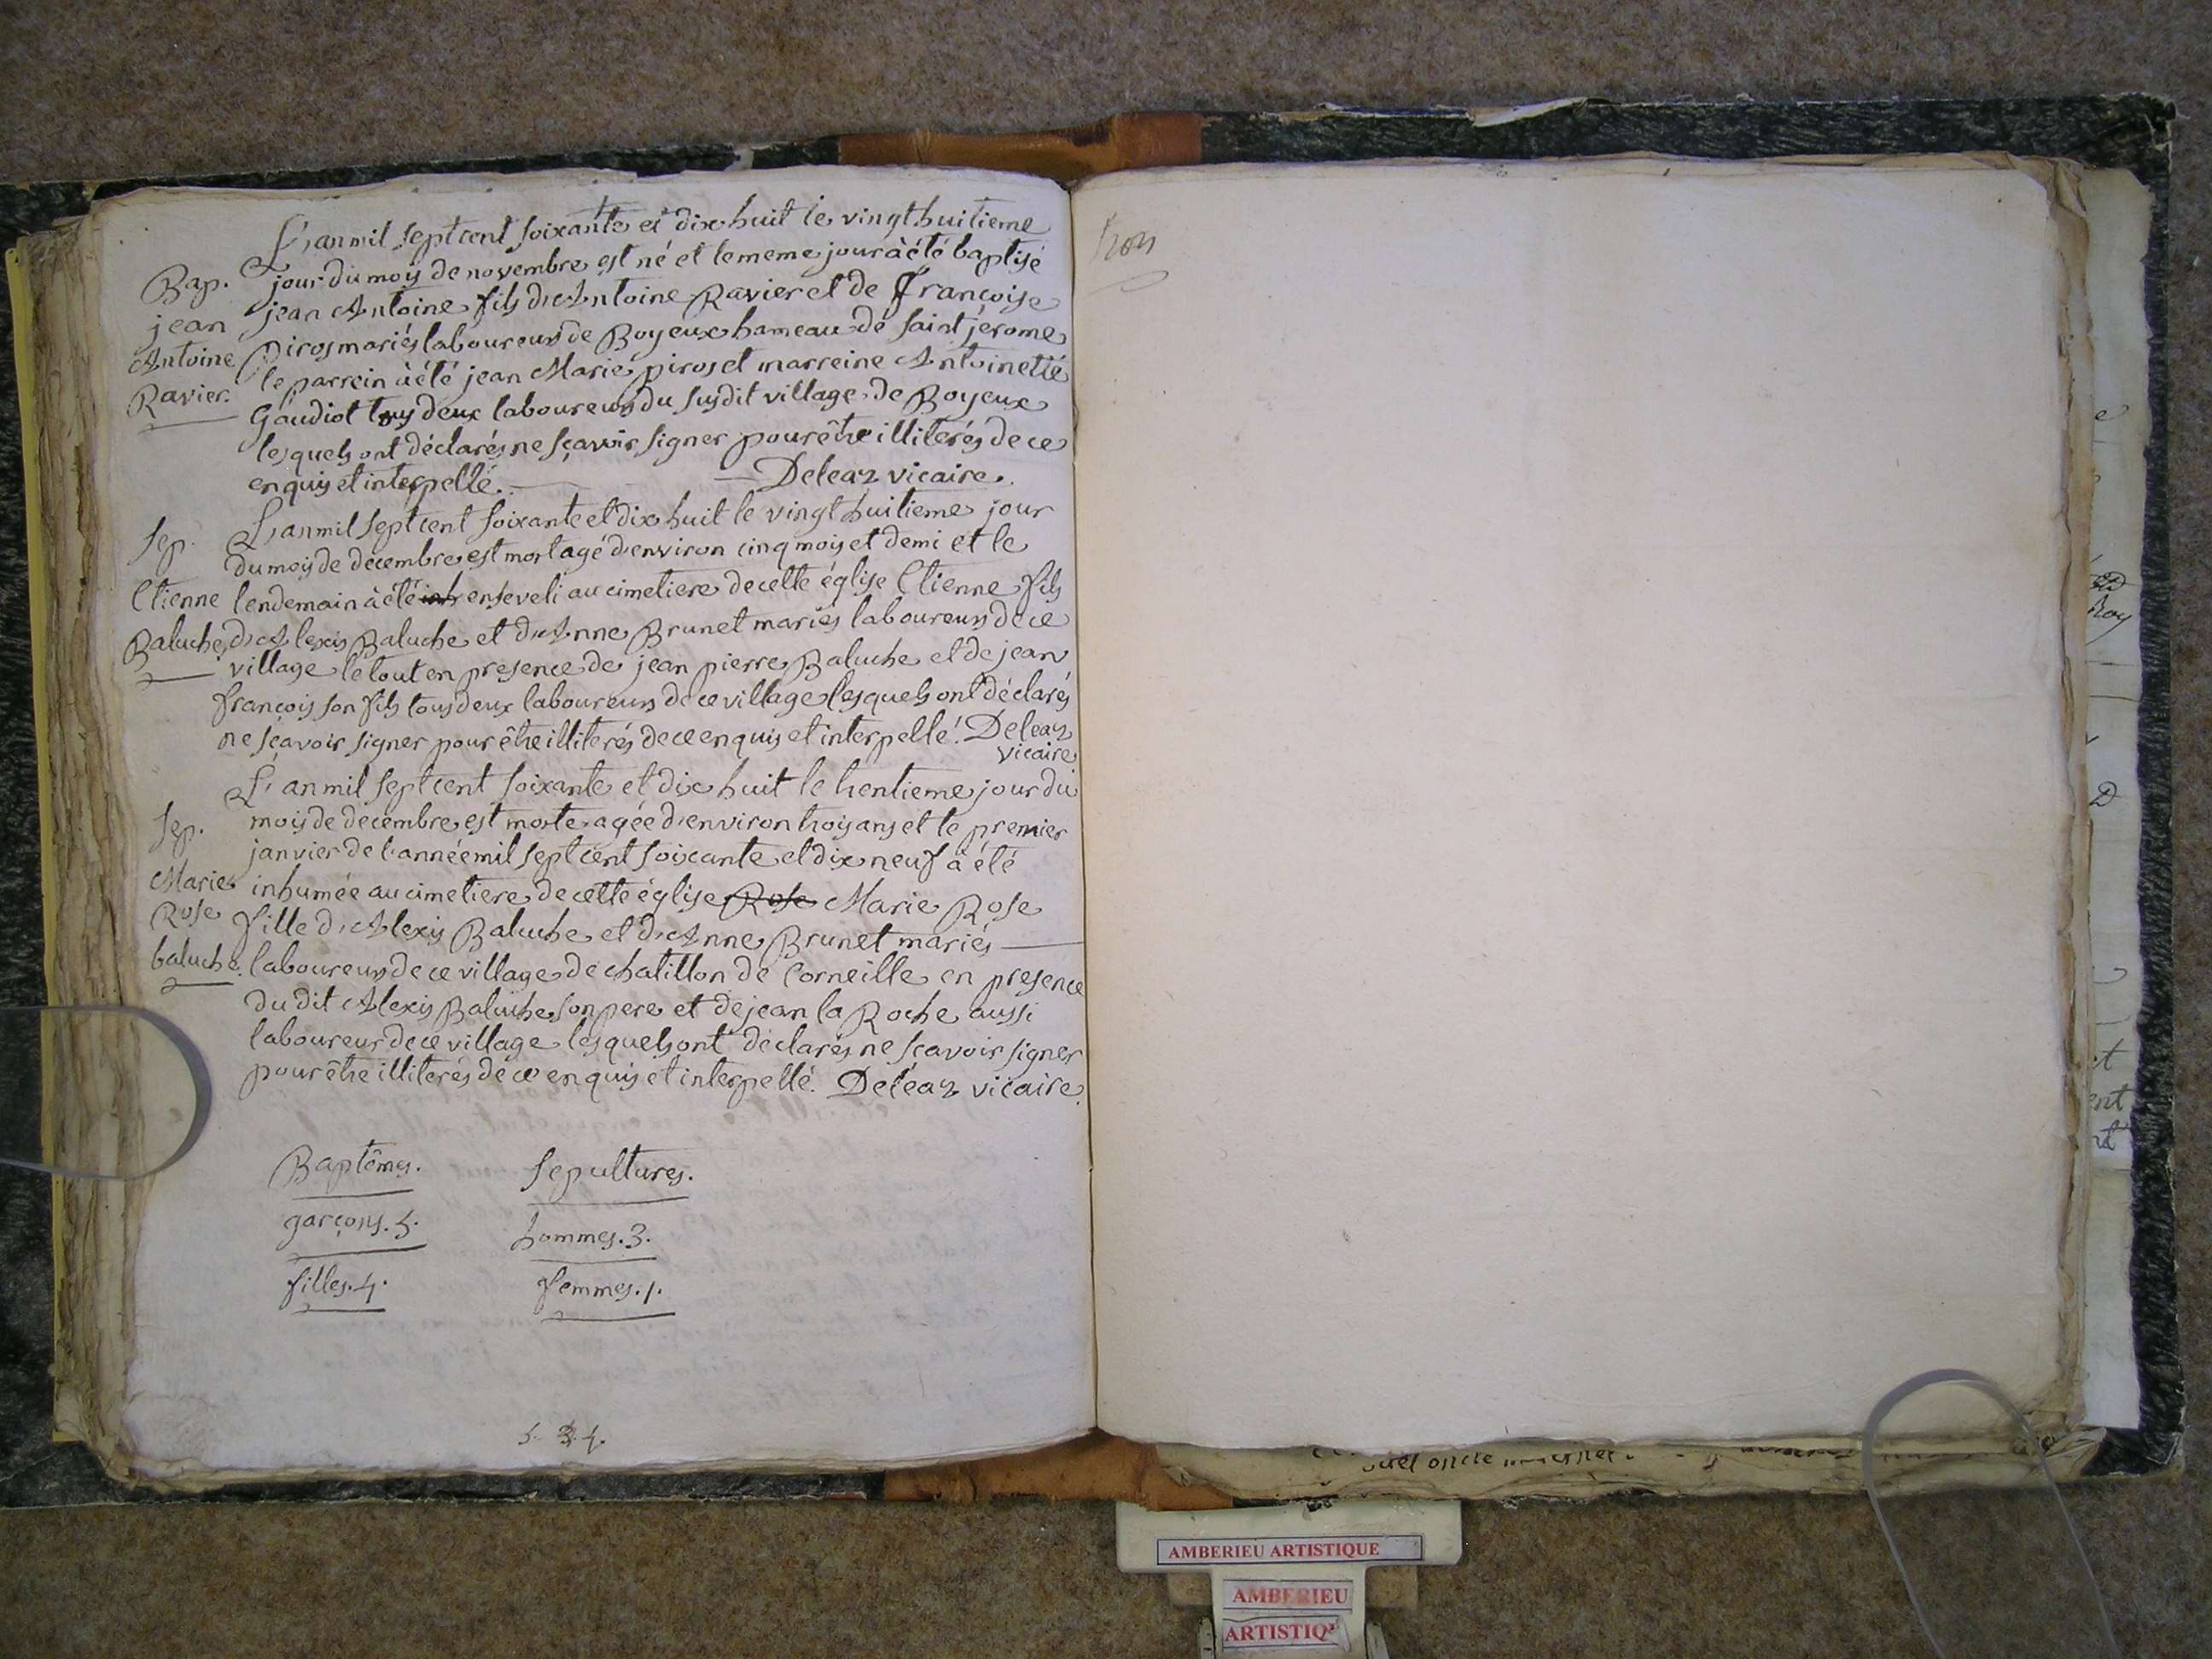 L'an mil sept cent soixante et dix huit le vingt huitieme
jour du mois de novembre est né et le meme jour à été baptisé
Bap. jean Antoine fils d'Antoine Ravier et de Françoise
jean Piros mariés laboureurs de Boyeux hameau de saint jerome
Antoine le parrein à été jean Marie piros et marreine Antoinette
Ravier. Gaudiot tous deux laboureurs du susdit village de Boyeux
lesquels ont déclarés ne sçavoir signer pour être illiterés de ce
enquis et interpellé. Deleaz vicaire.
L'an mil sept cent soixante et dix huit le vingt huitieme jour
Sep. du mois de decembre est mort agé d'environ cinq mois et demi et le
Etienne lendemain à été inh enseveli au cimetiere de cette église Etienne fils
Baluche d'Alexis Baluche et d'Anne Brunet mariés laboureurs de ce
village le tout en presence de jean pierre Baluche et de jean
françois son fils tous deux laboureurs de ce village lesquels ont déclarés
ne sçavoir signer pour être illiterés de ce enquis et interpellé. Deleaz
vicaire
L'an mil sept cent soixante et dix huit le trentieme jour du
Sep. mois de decembre est morte agée d'environ trois ans et le premier
janvier de l'année mil sept cent soixante et dix neuf à été
Marie inhumée au cimetiere de cette église Rose Marie Rose
Rose fille d'Alexis Baluche et d'Anne Brunet mariés
baluche. laboureurs de ce village de chatillon de Corneille en presence
du dit Alexis Baluche son pere et de jean la Roche aussi
laboureur de ce village lesquels ont déclarés ne sçavoir signer
pour être illiterés de ce enquis et interpellé. Deléaz vicaire.
Baptêmes. Sepultures.
garçons. 5. hommes. 3.
filles. 4. femmes. 1.
trois
AMBERIEU ARTISTIQUE
AMBERIEU
ARTISTIQ